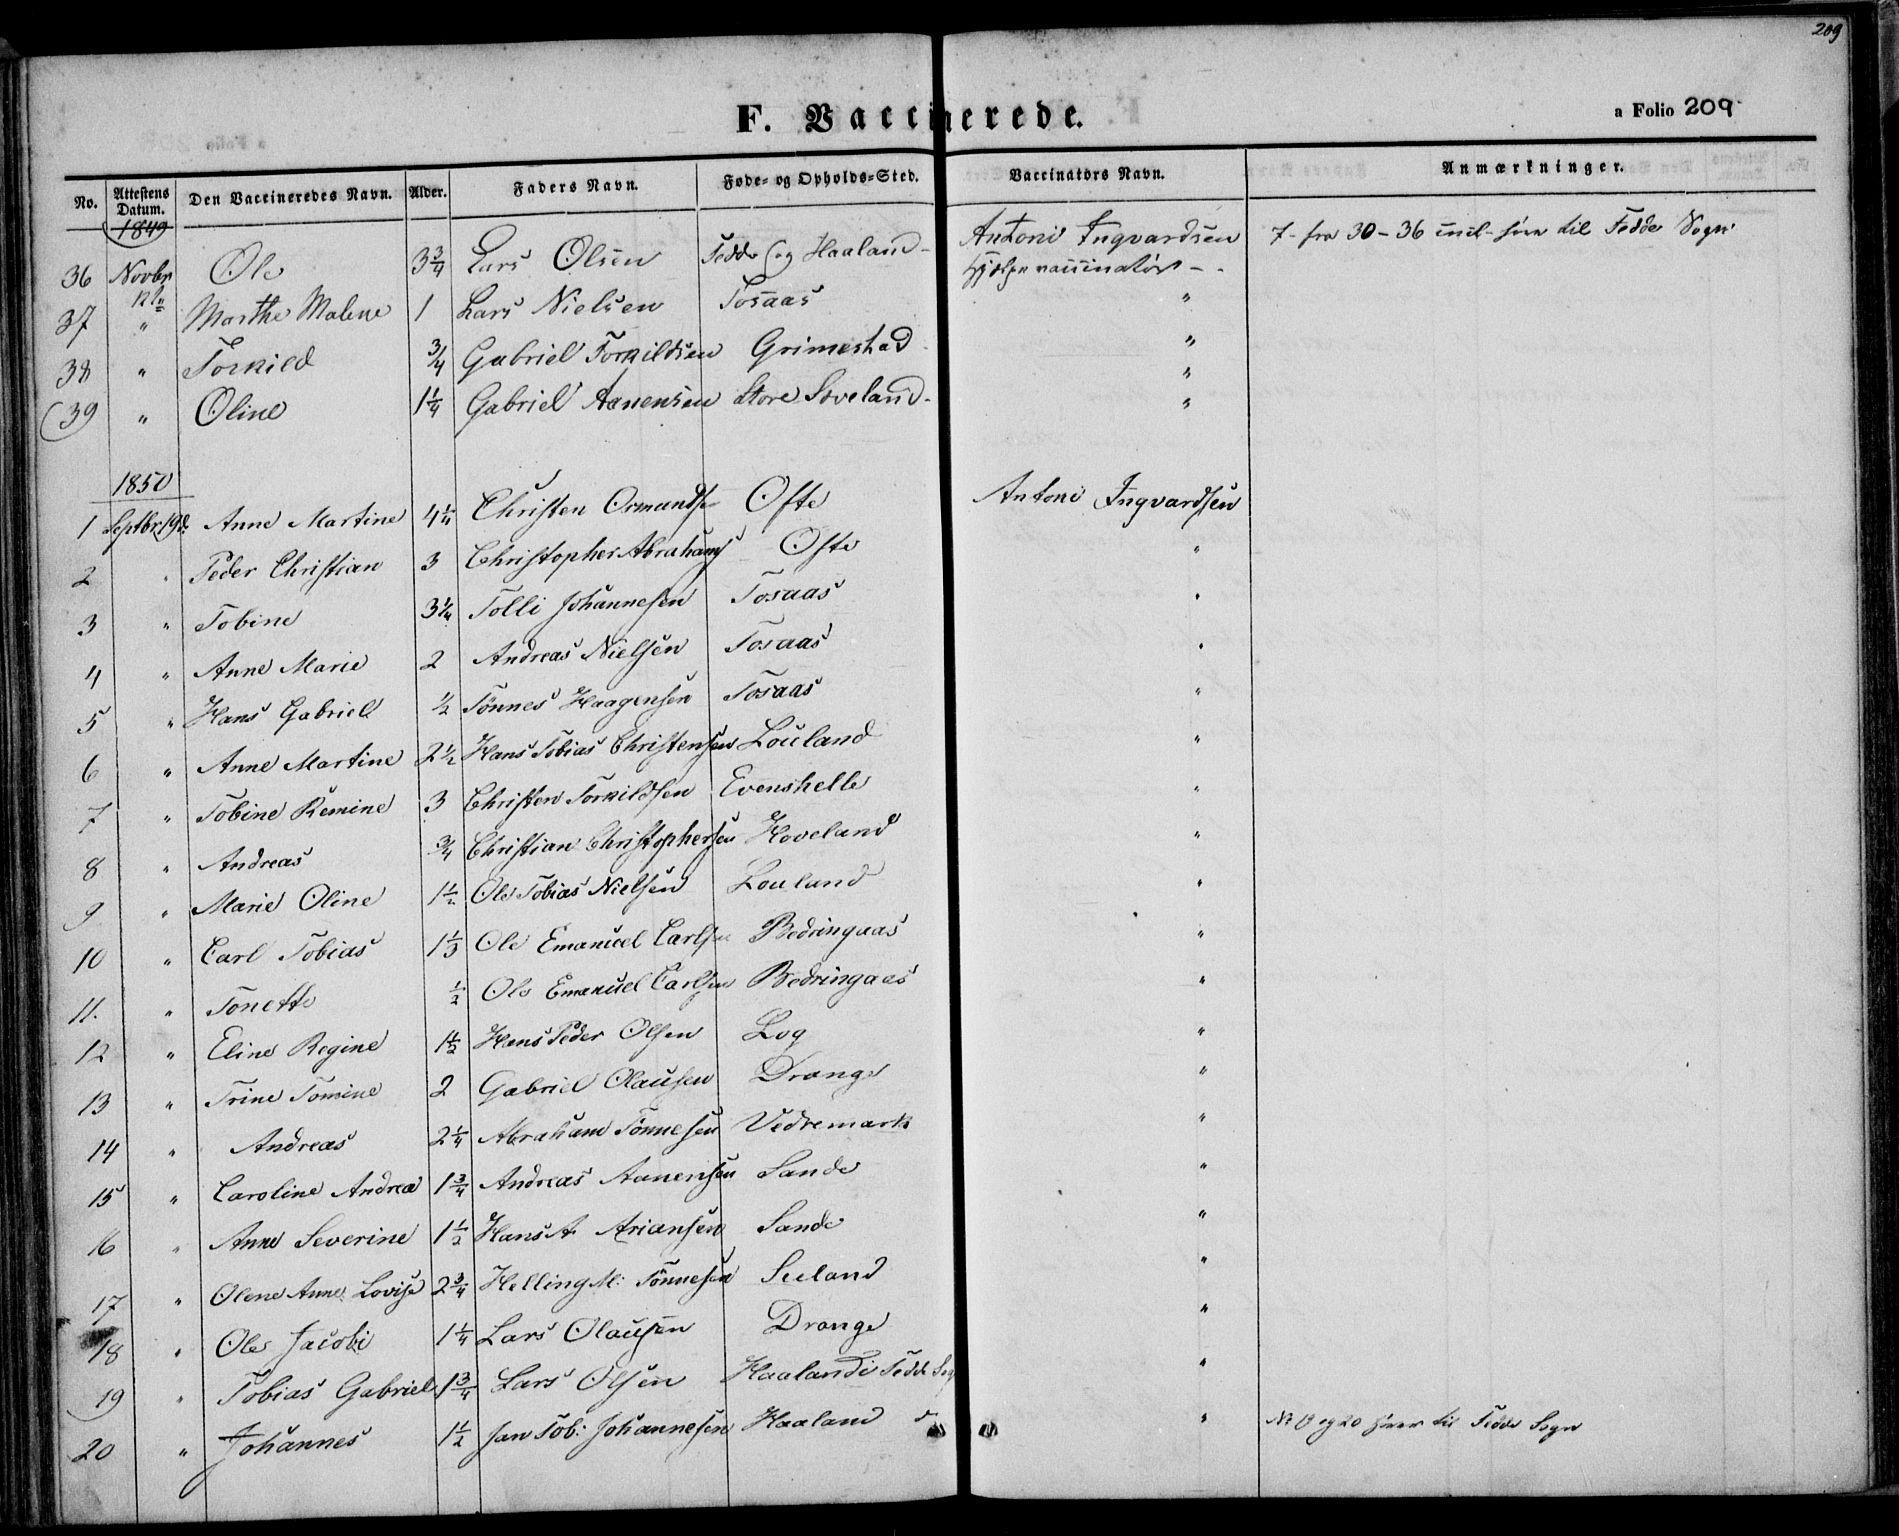 209
F. Vaccinerede.
a Folio 209
No. Attestens Datum. Den Vaccineredes Navn. Alder. Faders Navn. Føde- og Opholds-Sted. Vaccinatørs Navn. Anmærkninger.
1849
36 Novbr Ole 3 3/4 Lars Olsen Fedde Sog Haaland Antoni Ingvardsen 7 - fra 30 - 36 incl - hører til Fedde Sogn
Hjelpevaccinatør
37 " Marthe Malene 1 Lars Nielsen Tosaas "
38 " Torkild 3/4 Gabriel Torkildsen Grimestad "
39 " Oline 1 1/4 Gabriel Aanensen Store Soveland "
1850
1 Septbr 19d. Anne Martine 4 1/4 Christen Ormundsen Ofte Antoni Ingvardsen
2 " Peder Christian 3 Christopher Abrahams Ofte "
3 " Tobine 3 1/4 Tolli Johannesen Tosaas "
4 " Anne Marie 2 Andreas Nielsen Tosaas "
5 " Hans Gabriel 1/2 Tönnes Haagensen Tosaas "
6 " Anne Martine 2 1/2 Hans Tobias Christensen Louland "
7 " Tobine Remine 3 Christen Torkildsen Evenshelle "
8 " Andreas 3/4 Christian Christophersen Hoveland "
9 " Marie Oline 1 1/2 Ole Tobias Nielsen Louland "
10 " Carl Tobias 1 1/3 Ole Emanuel Carlsen Bedringaas "
11. " Tonette 1/2 Ole Emanuel Carlsen Bedringaas "
12 " Eline Regine 1 1/2 Hans Peder Olsen Log "
13 " Trine Tomine 2 Gabriel Olausen Drange "
14 " Andreas 2 1/4 Abraham Tönnesen Vedremark "
15 " Caroline Andrea 1 3/4 Andreas Aanensen Sande "
16 " Anne Severine 1 1/2 Hans A. Ariansen Sande "
17 " Olene Anne Lovise 2 3/4 Helling M: Tönnesen Seeland "
18 " Ole Jacobi 1 1/4 Lars Olausen Drange "
19 " Tobias Gabriel 1 3/4 Lars Olsen Haaland i Fedde Sog "
20 " Johannes 1 1/2 Jan Tob: Johannesen Haaland " No 19 og 20 hører til Fedde Sogn